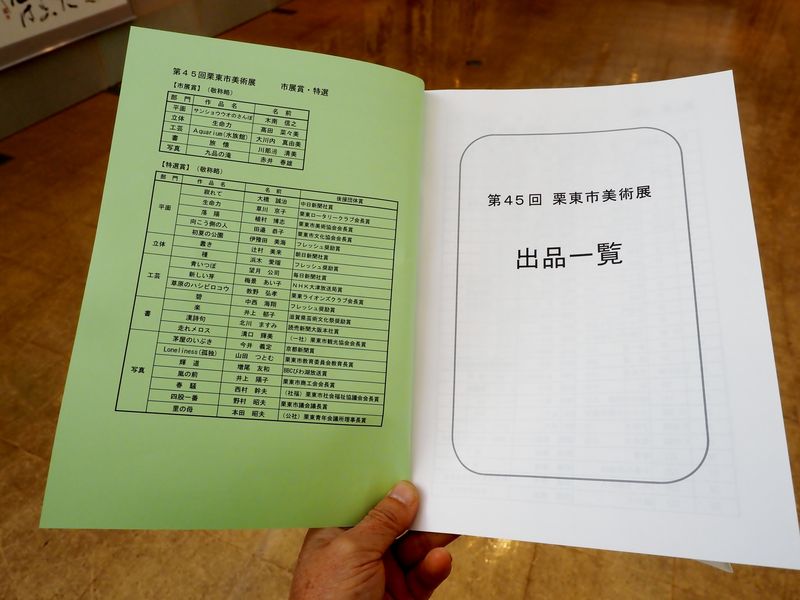 第45回栗東市美術展 市展賞・特選
【市展賞】(敬称略)
部門 作品名 名前
平面 サンショウウオのさんぽ 木南 信之
立体 生命力 高田 菜々美
工芸 Aquarium(水族館) 大川内 真由美
書 旅懐 川那邊 清美
写真 九品の滝 赤井 春雄
【特選賞】(敬称略)
部門 作品名 名前 後援団体賞
平面 寂れて 大橋 誠治 中日新聞社賞
生命力 草川 京子 栗東ロータリークラブ会長賞
落陽 植村 博志 栗東市美術協会会長賞
向こう側の人 田邉 恭子 栗東市文化協会会長賞
初夏の公園 伊豫田 美海 フレッシュ奨励賞
立体 轟き 辻村 美来 朝日新聞社賞
種 浜木 愛瑠 フレッシュ奨励賞
工芸 青いつぼ 望月 公司 毎日新聞社賞
新しい芽 梅景 あい子 NHK大津放送局賞
草原のハシビロコウ 教野 弘孝 栗東ライオンズクラブ会長賞
碧 中西 海翔 フレッシュ奨励賞
書 楽 井上 郁子 滋賀県芸術文化祭奨励賞
漢詩句 北川 ますみ 読売新聞大阪本社賞
写真 走れメロス 溝口 輝美 (一社)栗東市観光協会会長賞
茅屋のいぶき 今井 義定 京都新聞賞
Loneliness(孤独) 山田 つとむ 栗東市教育委員会教育長賞
輝道 増尾 友和 BBCびわ湖放送賞
嵐の前 井上 陽子 栗東市商工会会長賞
春騒 西村 幹夫 (社福)栗東市社会福祉協議会会長賞
四股一番 野村 昭夫 栗東市議会議長賞
里の母 本田 昭夫 (公社)栗東青年会議所理事長賞
第45回 栗東市美術展
出品一覧